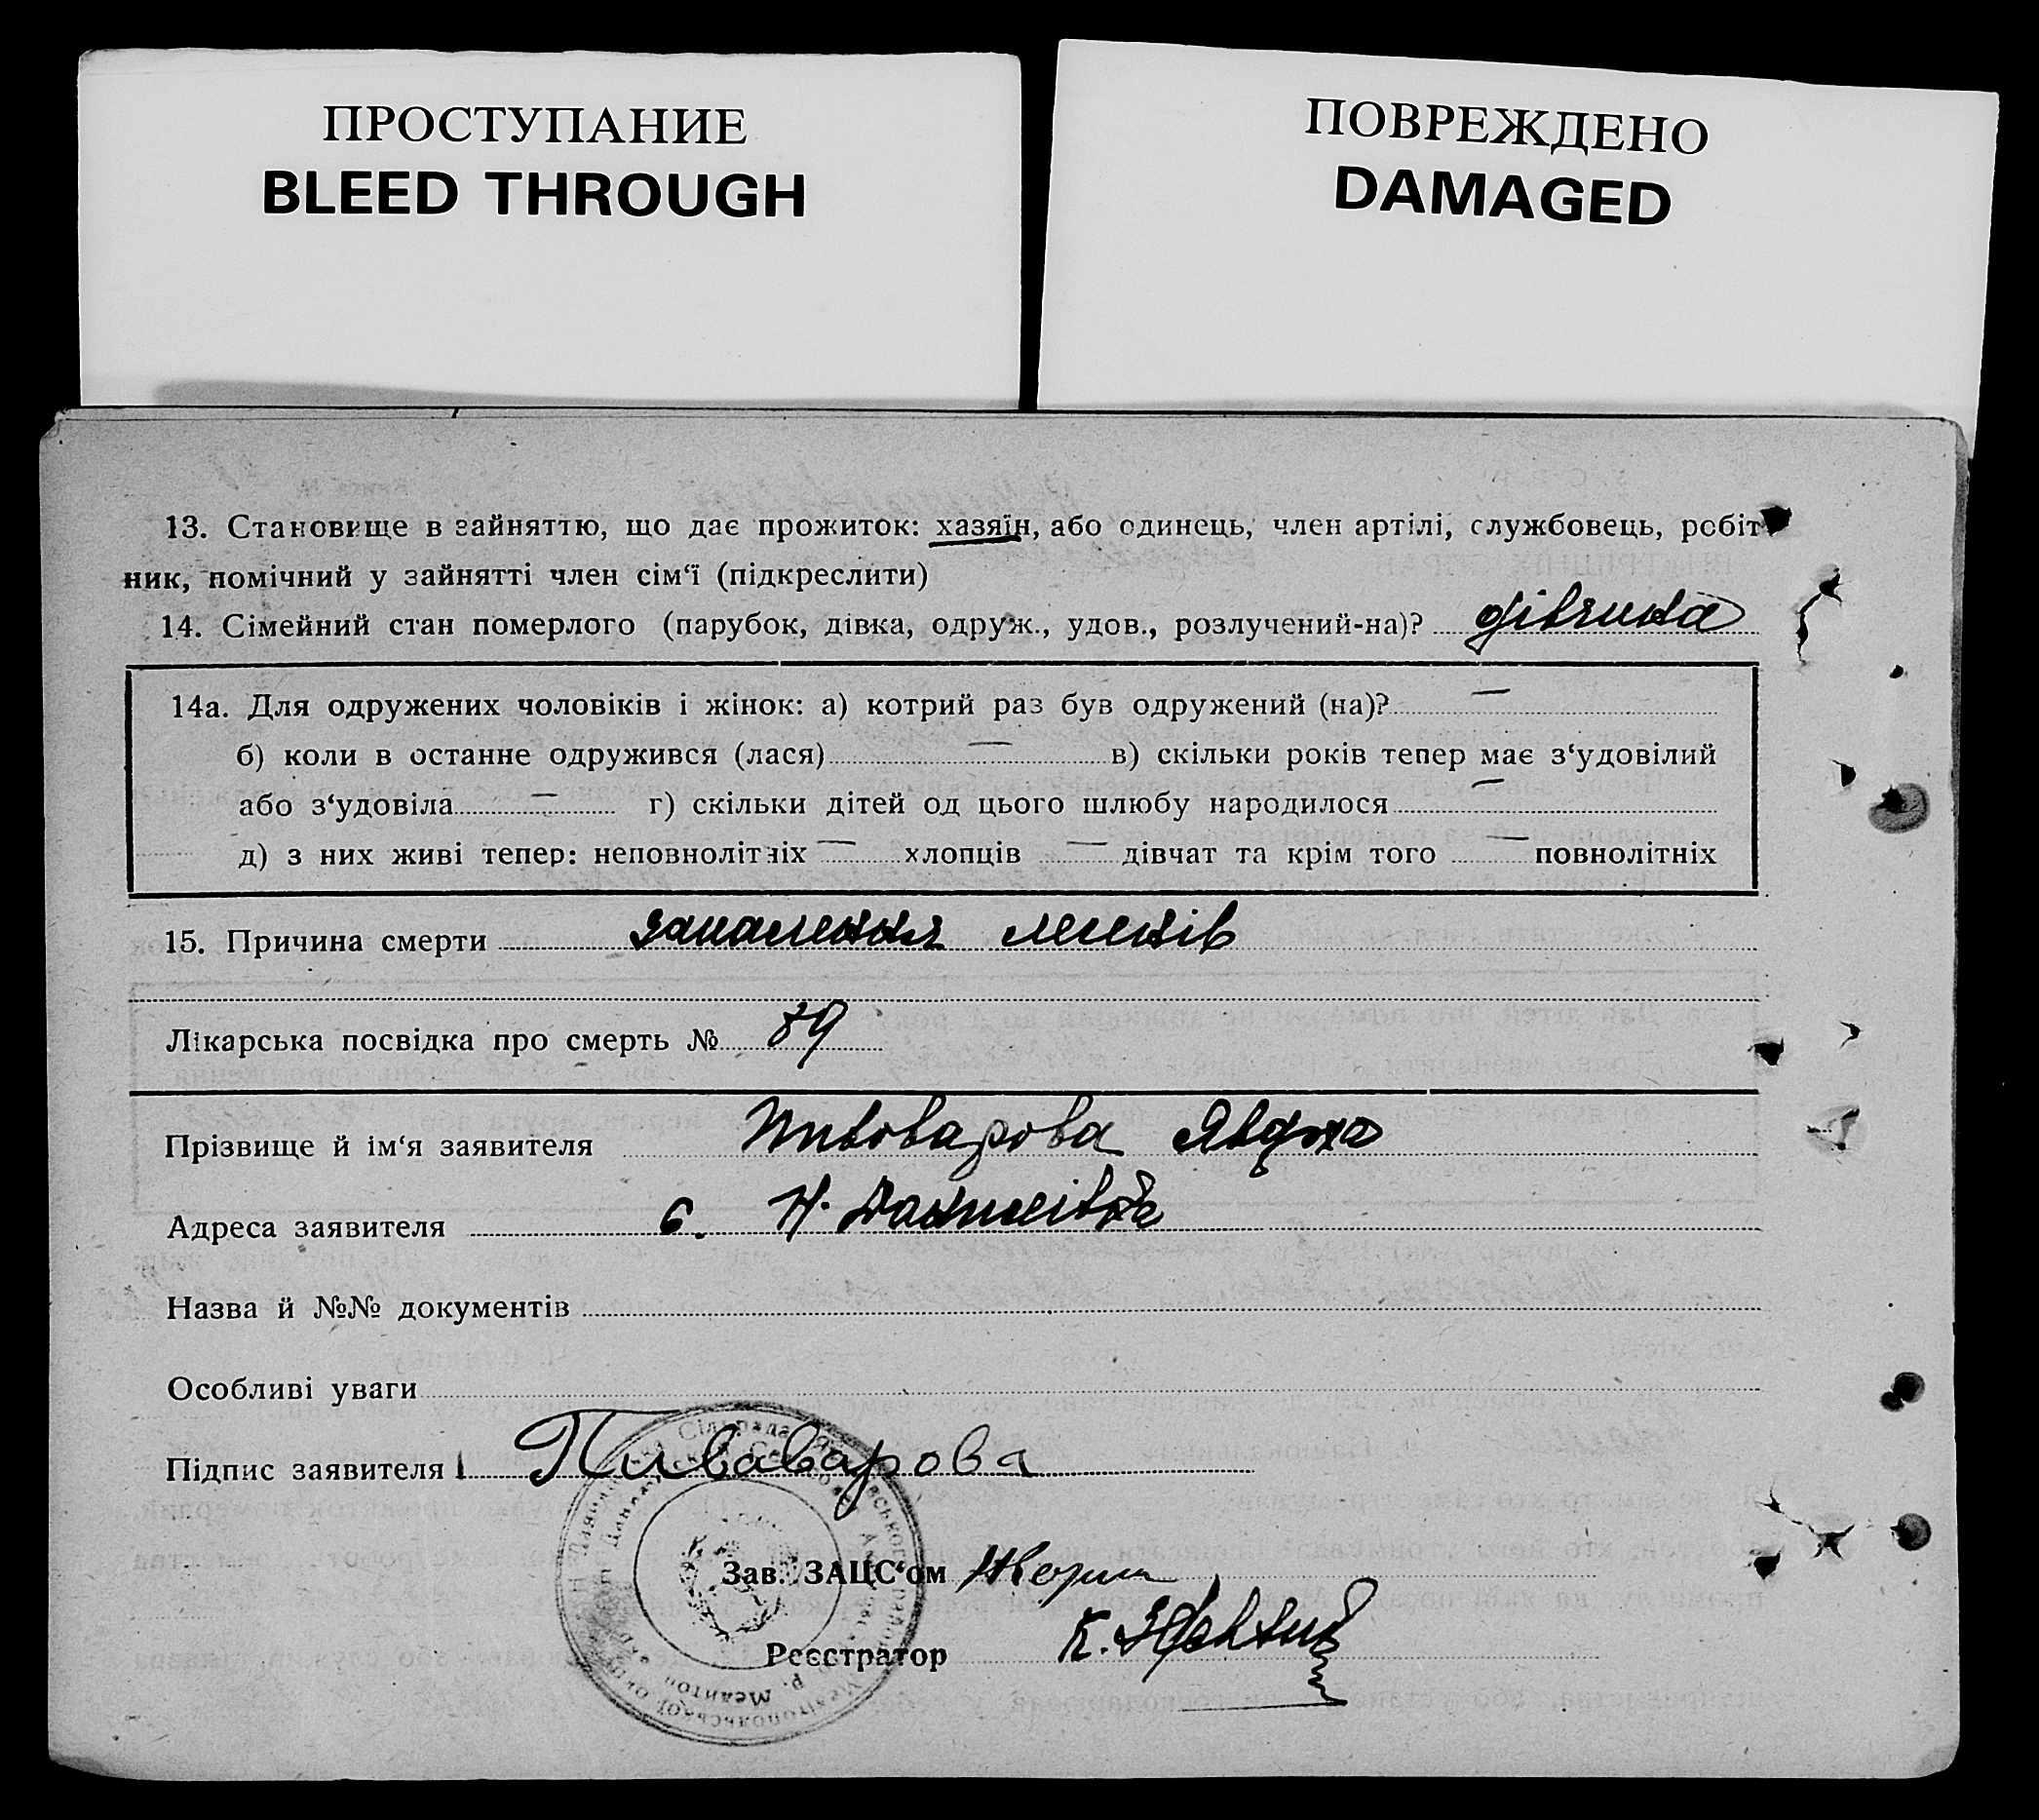 ПРОСТУПАНИЕ
BLEED THROUGH
ПОВРЕЖДЕНО
DAMAGED
13. Становище в зайняттю, що дає прожиток: хазяїн, або одинець, член артілі, службовець, робіт
ник, помічний у зайнятті член сім‘ї (підкреслити)
14. Сімейний стан померлого (парубок, дівка, одруж., удов., розлучений-на)? дівчина
14а. Для одружених чоловіків і жінок: а) котрий раз був одружений (на)? —
б) коли в останнє одружився (лася) — в) скільки років тепер має з‘удовілий
або з‘удовіла — г) скільки дітей од цього шлюбу народилося —
д) з них живі тепер: неповнолітніх — хлопців — дівчат та крім того — повнолітніх
15. Причина смерти запалення легенів
Лікарська посвідка про смерть № 89
Прізвище й ім‘я заявителя Пивоварова Явдоха
Адреса заявителя с. Н. Данилівка
Назва й №№ документів
Особливі уваги
Підпис заявителя Пиваварова
Зав. ЗАЦС‘ом
Реєстратор К.